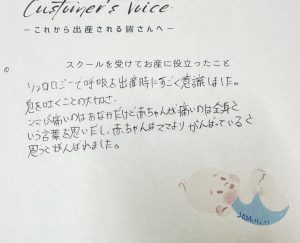 Customer's Voice
ーこれから出産される皆さんへー
スクールを受けてお産に役立ったこと
ソフロロジーで呼吸を出産時にすごく意識しました。
息を吐くことの大切さ、
ママが痛いのはおなかだけど赤ちゃんが痛いのは全身と
いう言葉を思いだし、赤ちゃんはママよりがんばっていると
思ってがんばれました。